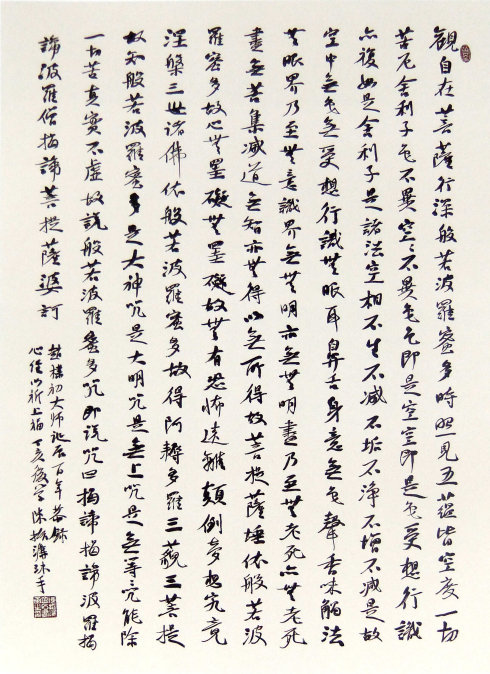 觀自在菩薩行深般若波羅蜜多時照見五蘊皆空度一切
苦厄舍利子色不異空空不異色色即是空空即是色受想行識
亦復如是舍利子是諸法空相不生不滅不垢不淨不增不減是故
空中無色無受想行識無眼耳鼻舌身意無色聲香味觸法
無眼界乃至無意識界無無明亦無無明盡乃至無老死亦無老死
盡無苦集滅道無智亦無得以無所得故菩提薩埵依般若波
羅蜜多故心無罣礙無罣礙故無有恐怖遠離顛倒夢想究竟
涅槃三世諸佛依般若波羅蜜多故得阿耨多羅三藐三菩提
故知般若波羅蜜多是大神咒是大明咒是無上咒是無等咒能除
一切苦真實不虛故說般若波羅蜜多咒即說咒曰揭諦揭諦波羅揭
諦波羅僧揭諦菩提薩婆訶
趙樸初大師誕辰百年恭錄
心經以祈上福丁亥